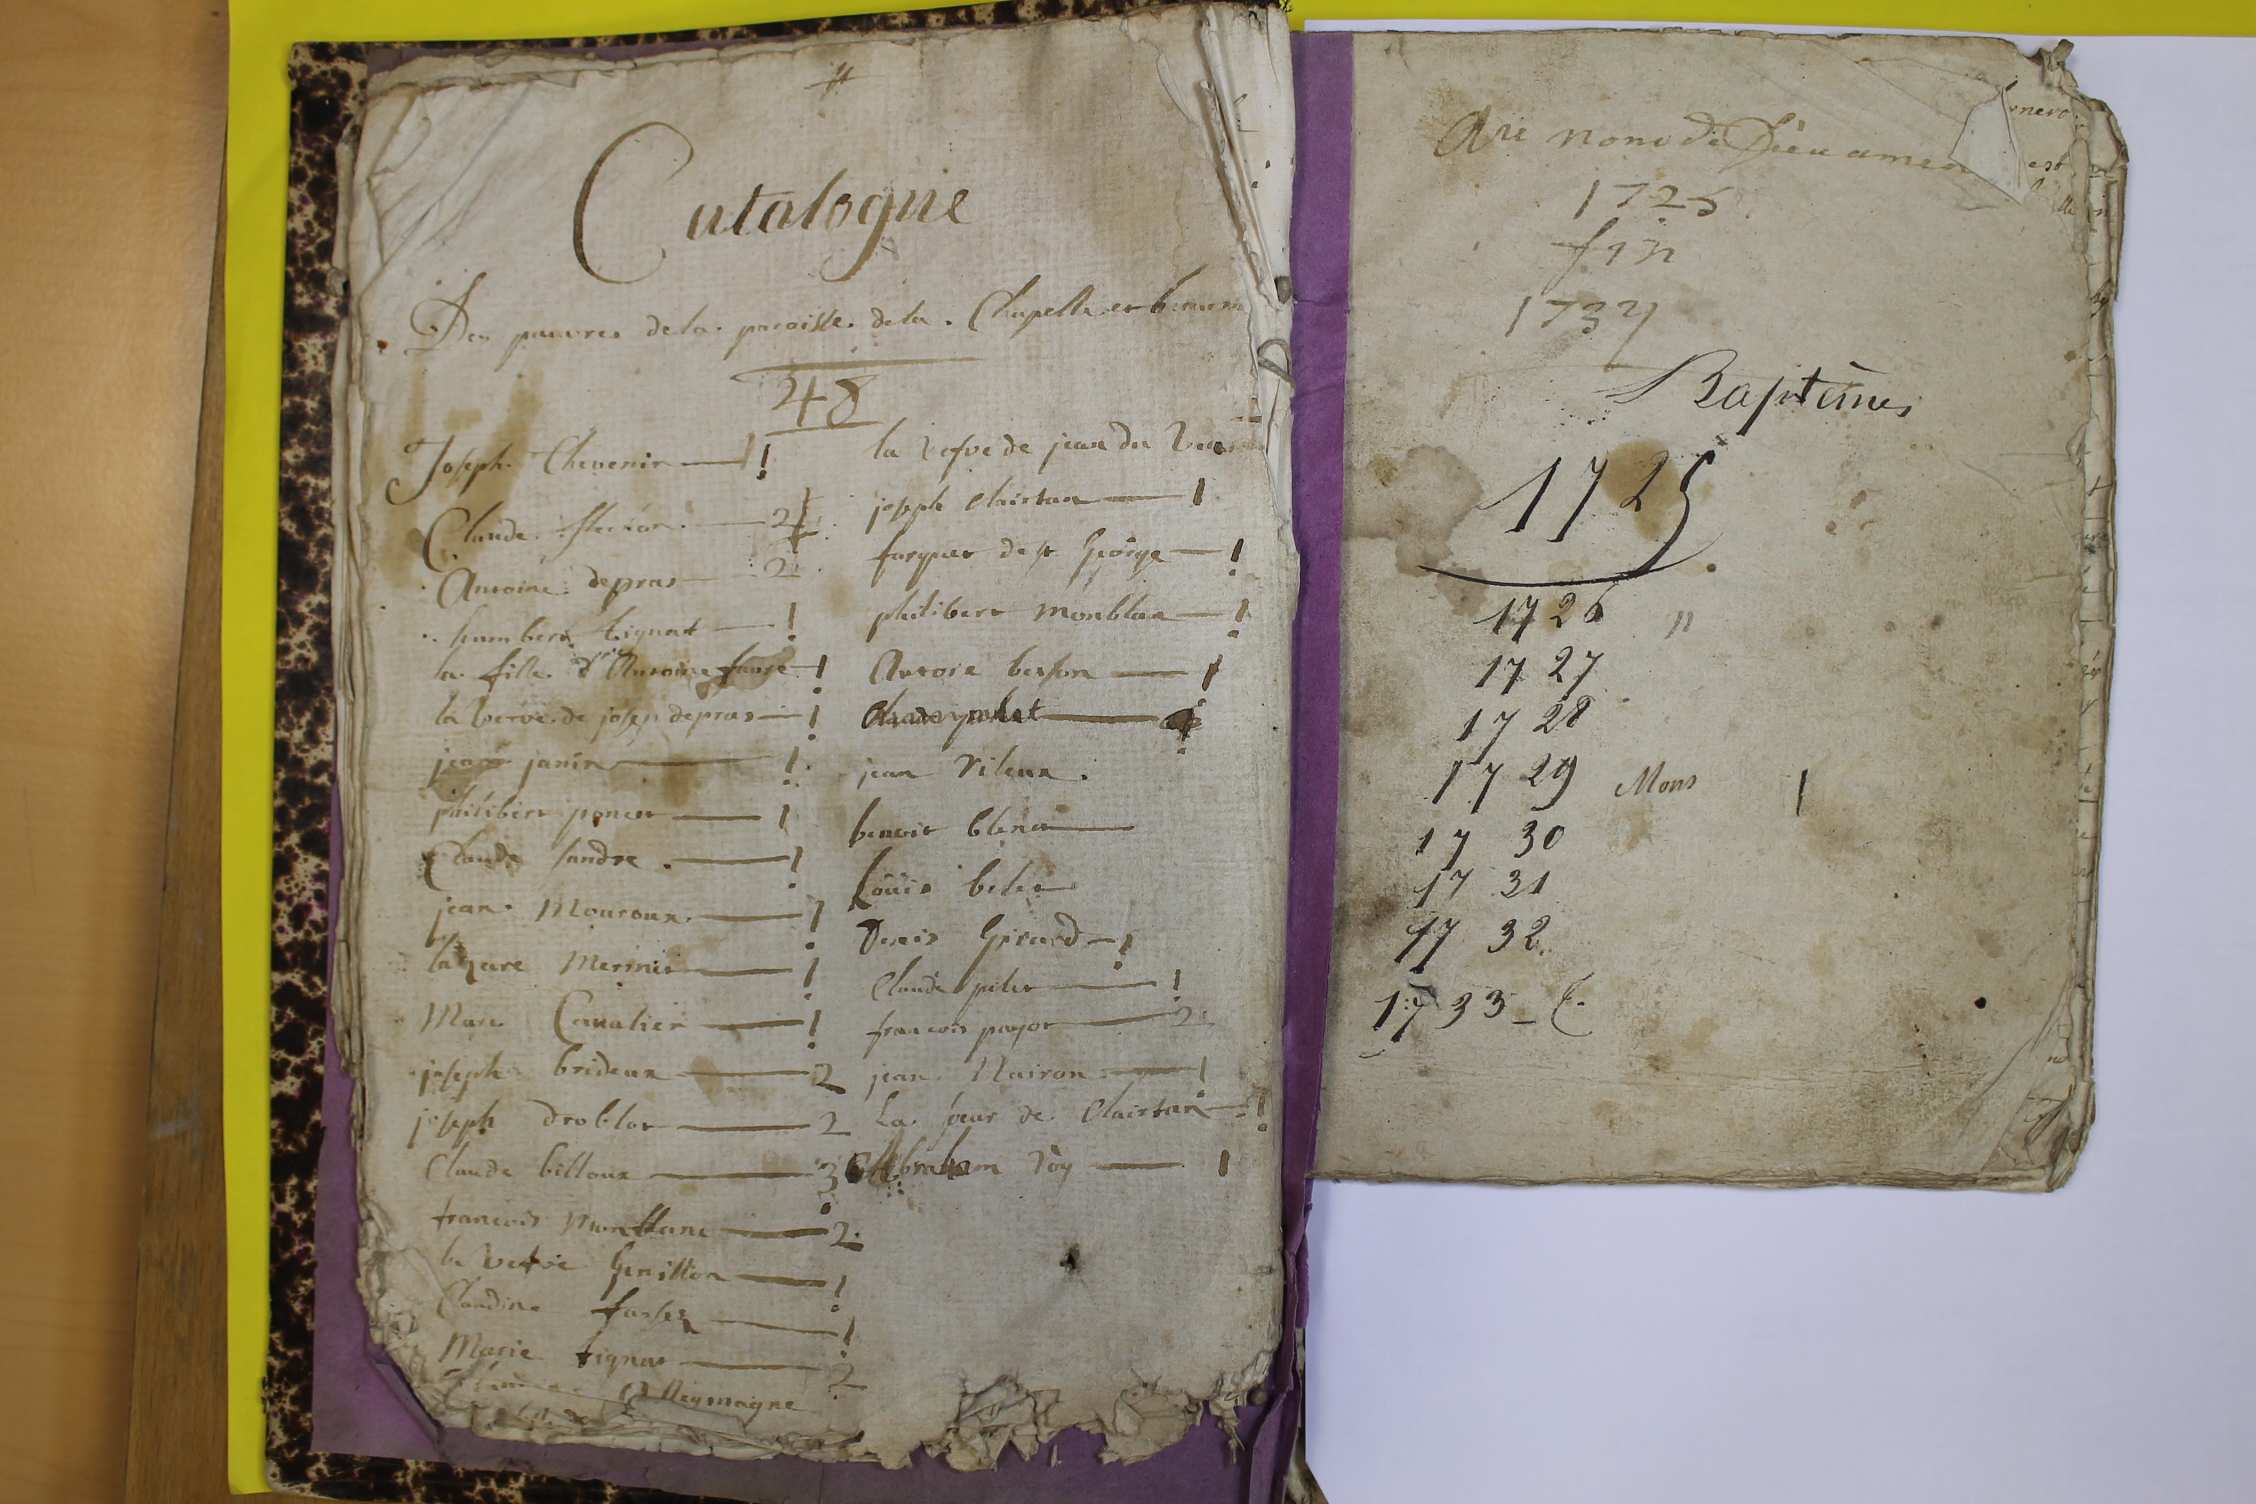 Catalogue
Des pauvres de la. paroisse. de la. Chapelle et
48
Joseph. Chevenir — 1
Claude. — 2
Antoine depras — 2
humbert tignat — 1
la fille d'Antoine faure — 1
la vefve de josep depras — 1
jean janin — 1
philibert poncet — 1
Claude sandre. — 1
jean. Mouroux. — 1
lazare Mernier — 1
Marc Cavalier — 1
joseph brideux — 2
joseph droblot — 2
Claude billoux — 3
francois Monblanc — 2
la vefve Genillon — 1
Claudine — 1
Marie tignat — 2
Allegmagne
la vefve de jean du
joseph Clairtan — 1
de st George — 1
philibert Monblan — 1
Antoie besson — 1
Claude — 1
jean Vileux.
benoit blenct —
Louis belet
Denis Girard — 1
Claude pilet — 1
francois payot — 2
jean. Nairon — 1
La soeur de Clairtan — 1
Abraham Roy — 1
nom de Dieu amen
1725
fin
1734
Baptêmes
1725
1726 "
1727
1728
1729 Mons
1730
1731
1732
1733